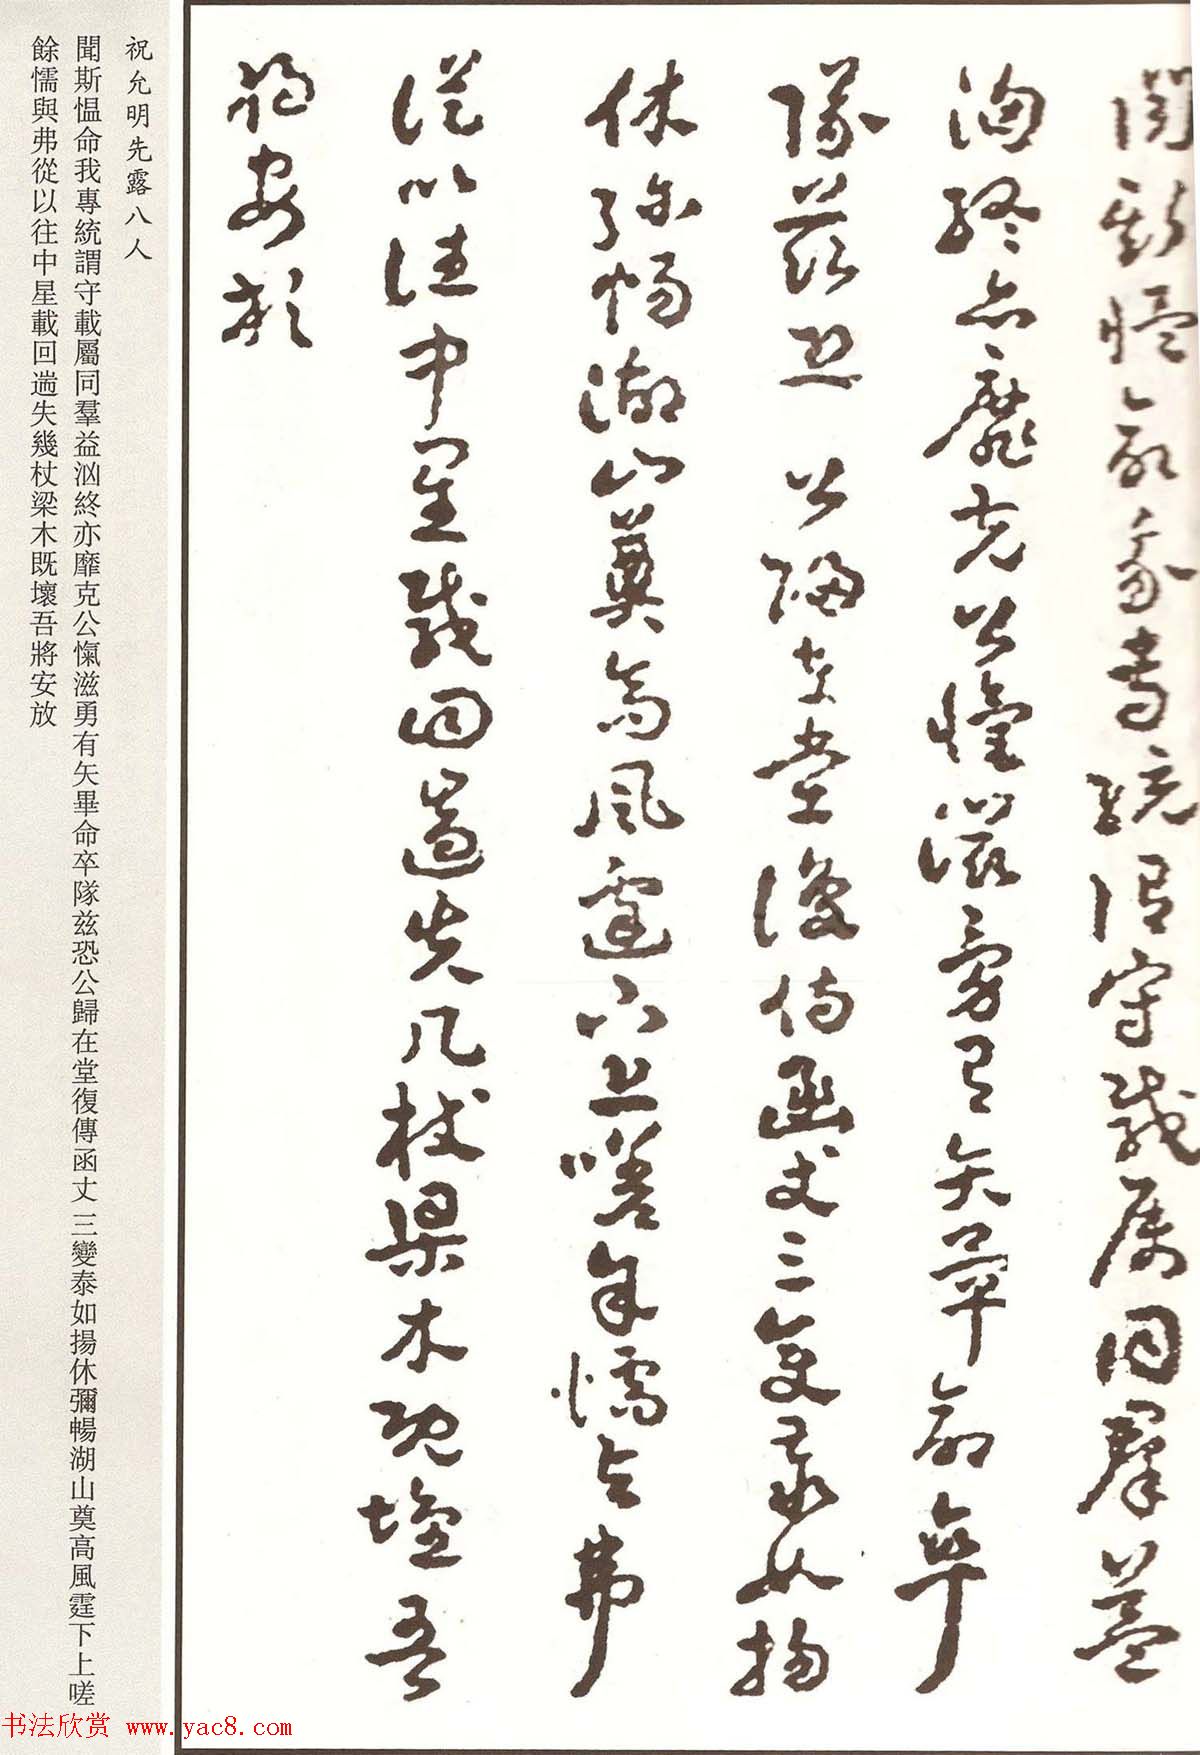 聞斯愠命我專統謂守載屬同羣益
洶終亦靡克公愾滋勇有矢畢命卒
隊兹恐 公歸在堂復傳函丈三變泰如揚
休彌暢湖山奠高風霆下上嗟餘懦與弗
從以往中星載回遄失几杖梁木既壞吾
將安放
祝允明先露八人
聞斯愠命我專統謂守載屬同羣益汹終亦靡克公愾滋勇有矢畢命卒隊兹恐公歸在堂復傳函丈三變泰如揚休彌暢湖山奠高風霆下上嗟
餘懦與弗從以往中星載回遄失幾杖梁木既壞吾將安放
书法欣赏 www.yac8.com